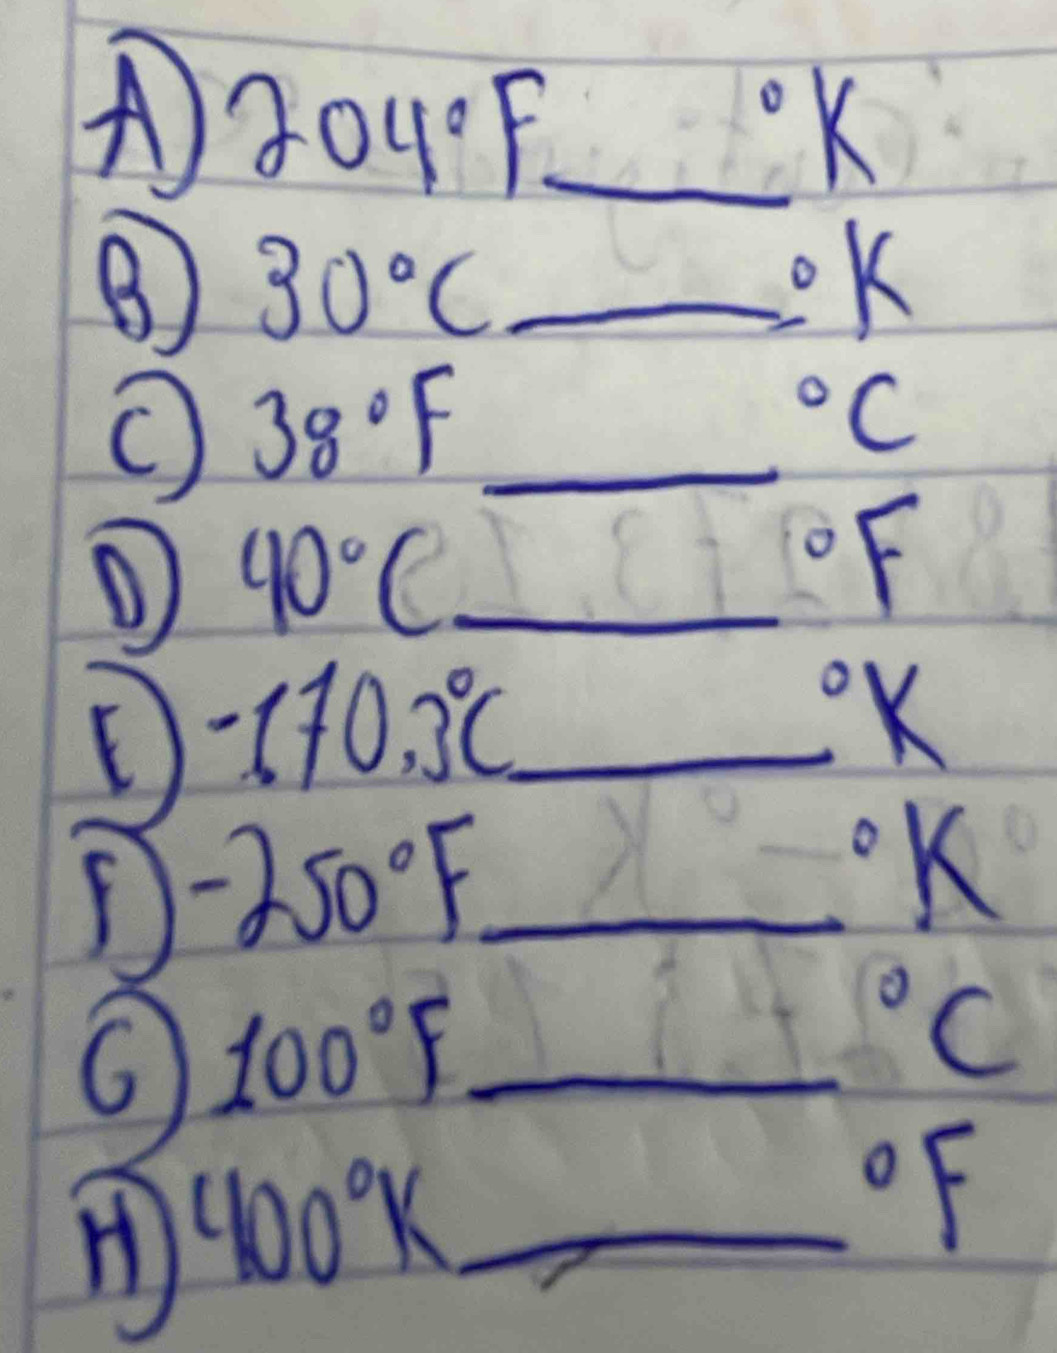 A) 204°F ____ °K
B) 30°C ____ °K
C) 38°F ____ °C
D) 40°C ____ °F
E) -170.3°C ____ °K
F) -250°F ____ °K
G) 100°F ____ °C
H) 400°K ____ °F